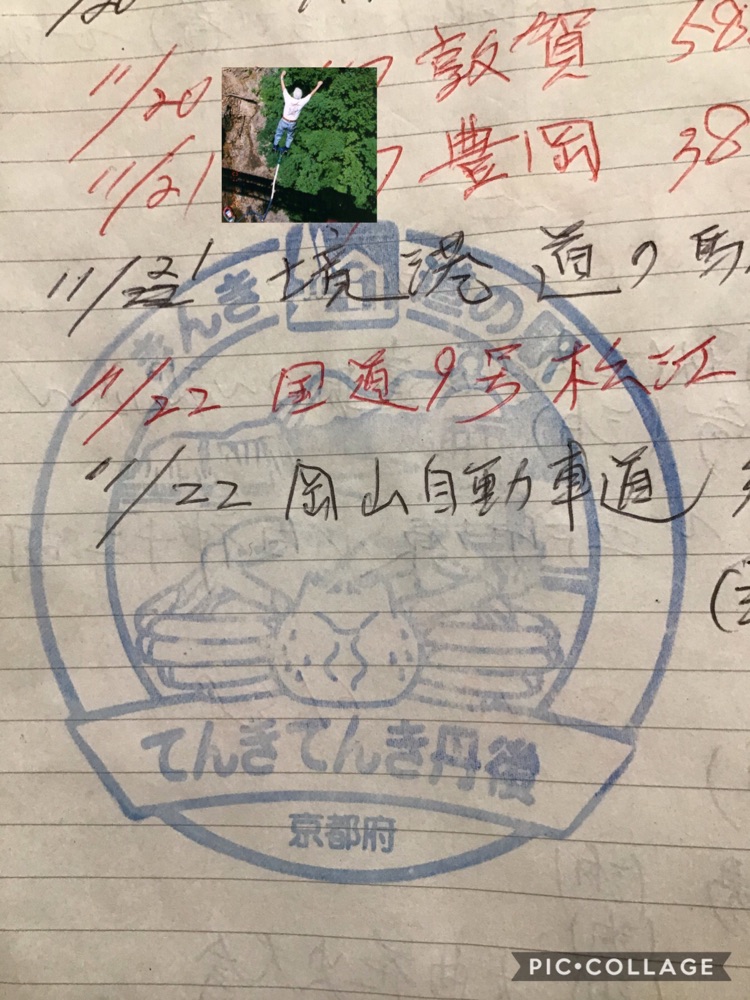 11/20 敦賀 58
11/21 豊岡 38
11/21 境港 道の
11/22 国道9号 松江
11/22 岡山自動車道
きんき 道の駅
てんきてんき丹後
京都府
PIC•COLLAGE